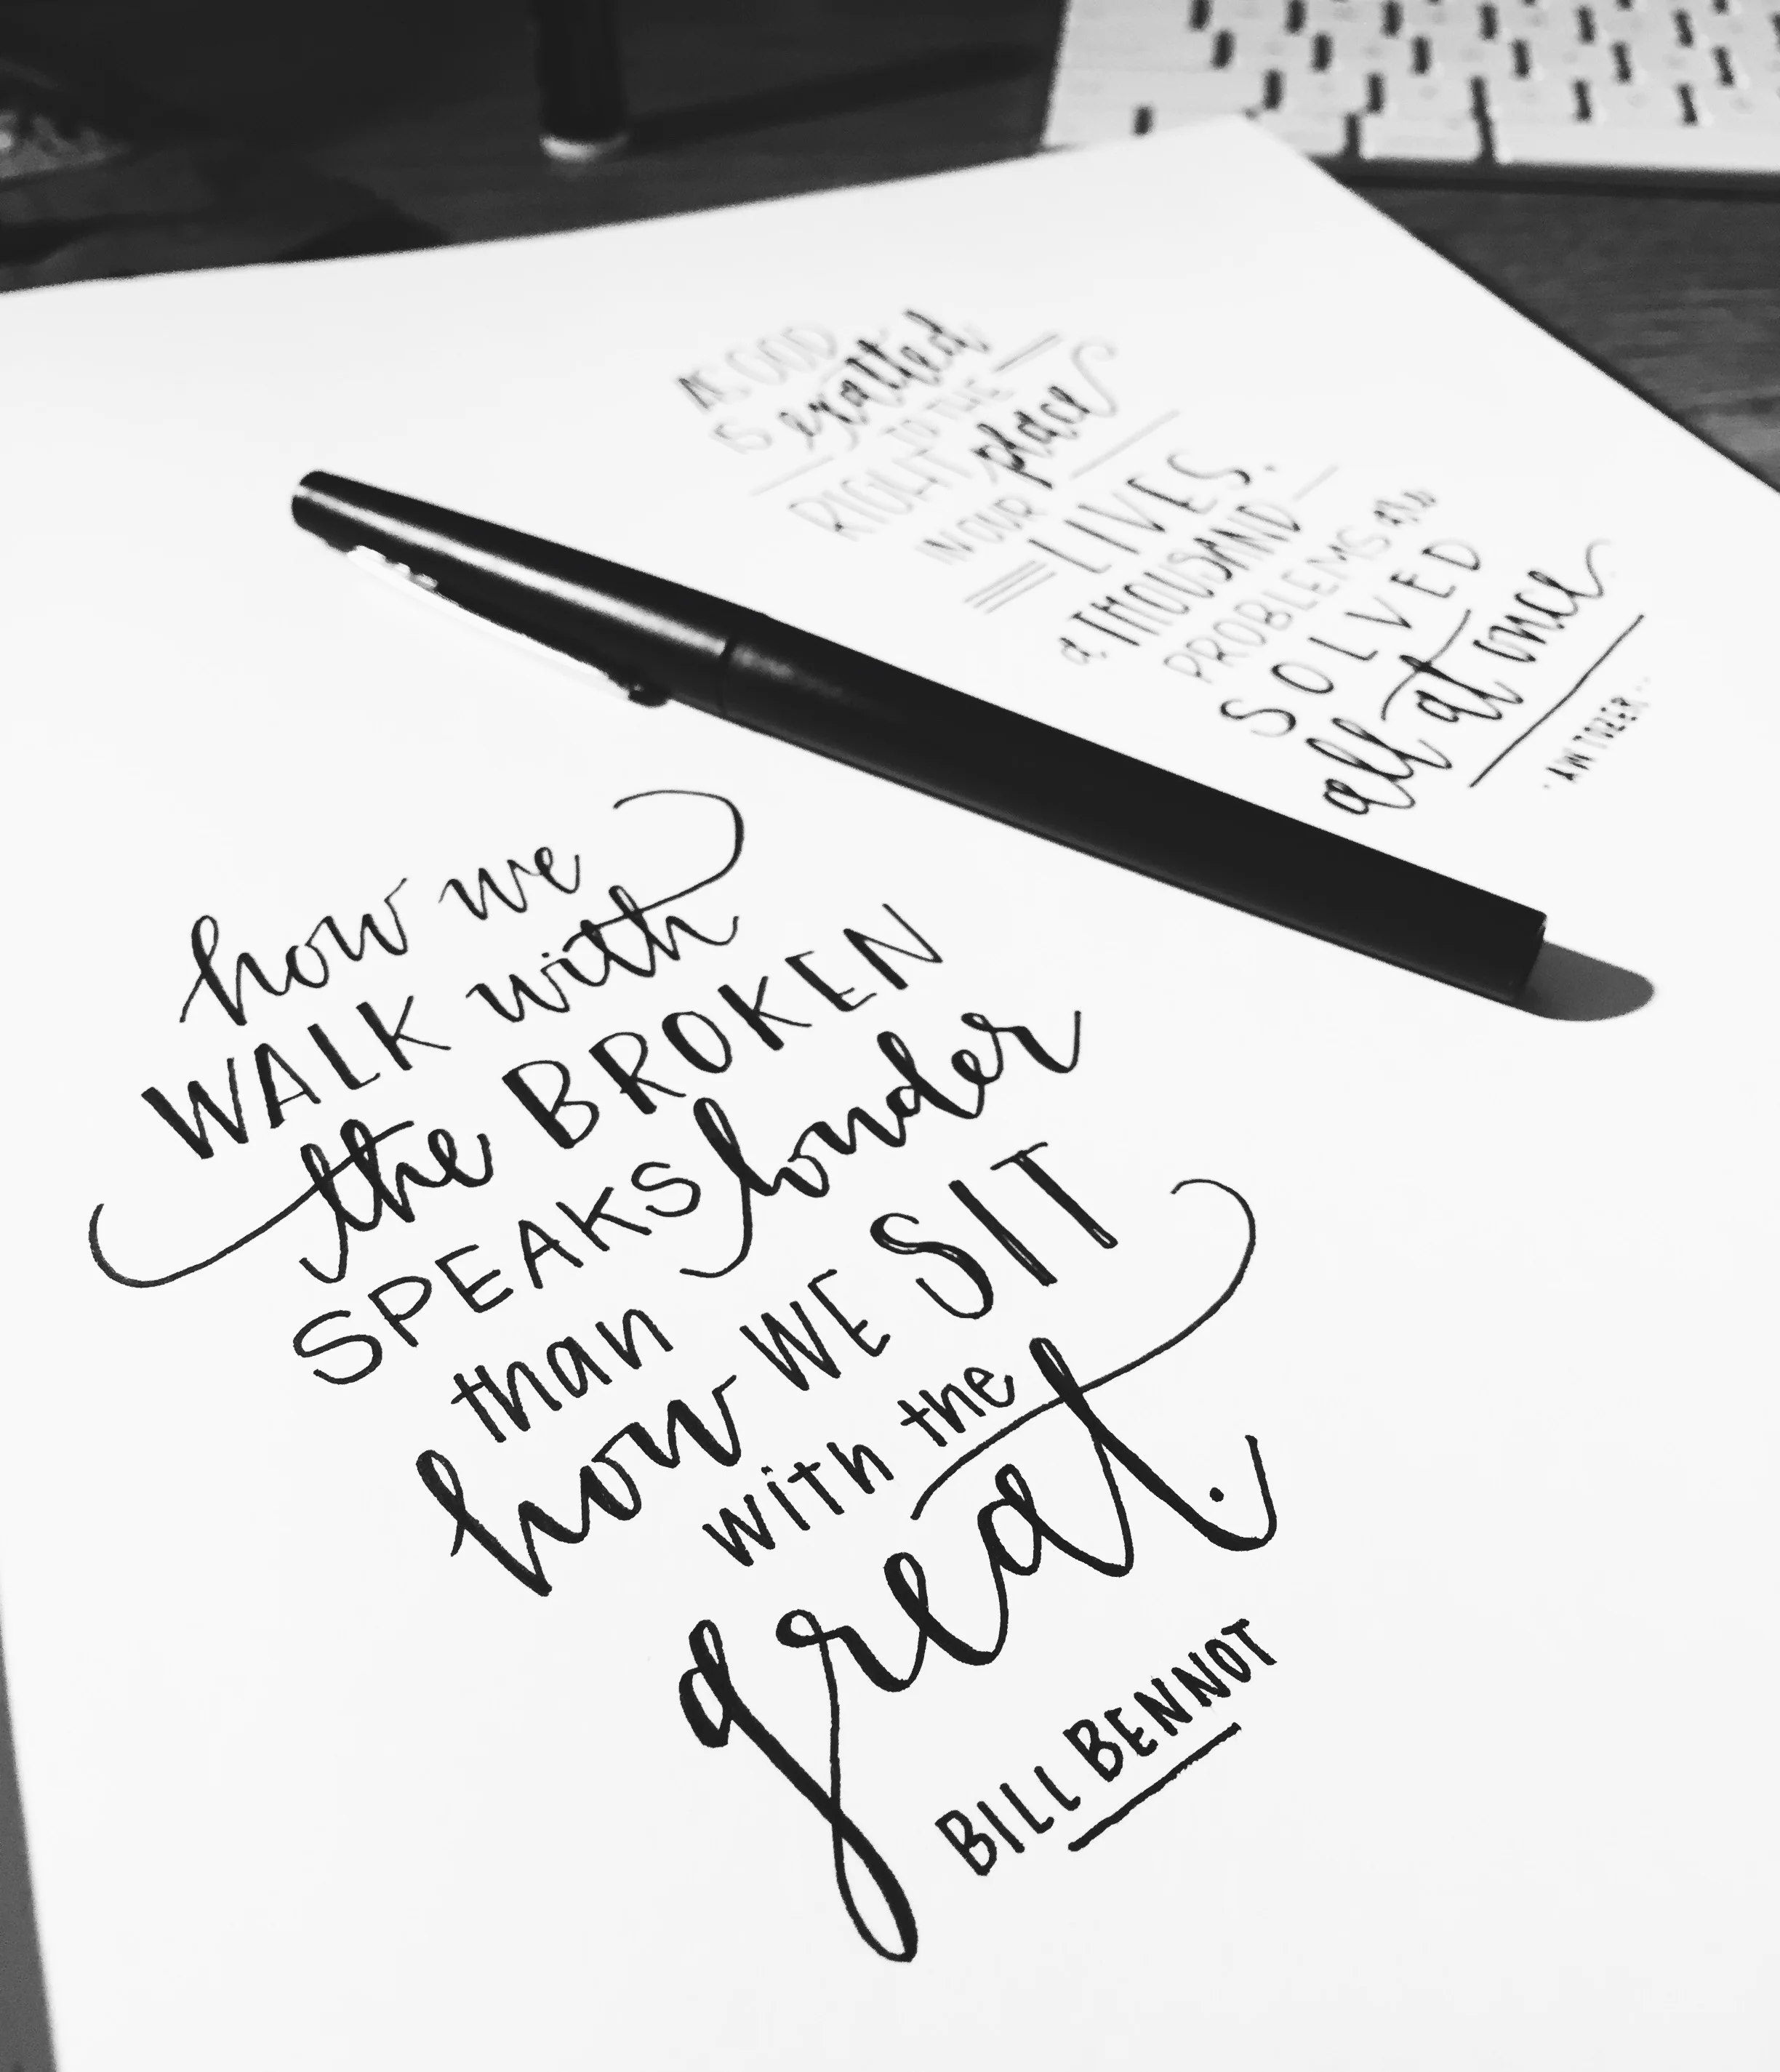 AS GOD
IS exalted
TO THE
RIGHT place
IN OUR
LIVES.
a THOUSAND
PROBLEMS are
SOLVED
all at once
·AW TOZER··
how we
WALK with
the BROKEN
SPEAKS louder
than
how WE SIT
with the
great.
BILL BENNOT